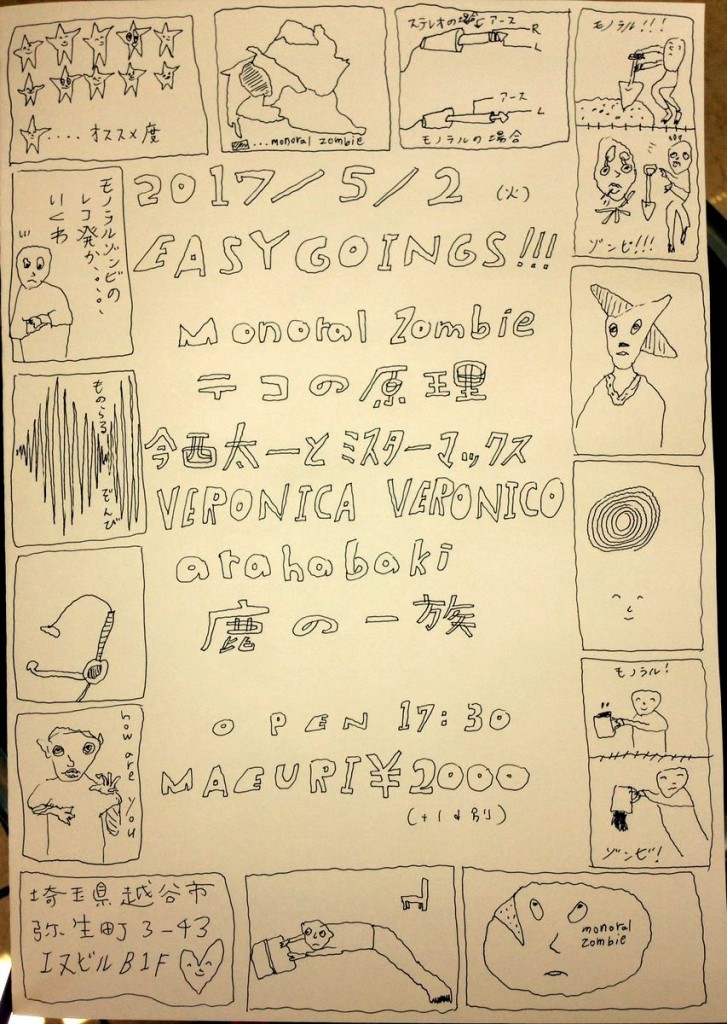 ☆....オススメ度
...monoral zombie
ステレオの場合
アース
R
L
アース
L
モノラルの場合
モノラル!!!
ゾンビ!!!
2017/5/2 (火)
EASYGOINGS!!!
Monoral Zombie
テコの原理
今西太一とミスターマックス
VERONICA VERONICO
arahabaki
鹿の一族
OPEN 17:30
MAEURI¥2000
(+1d別)
モノラルゾンビの
レコ発か、、、、、
いくわ
ものらる
ぞんび
how are you
モノラル!
ゾンビ!
埼玉県越谷市
弥生町3-43
エヌビルB1F
monoral
zombie